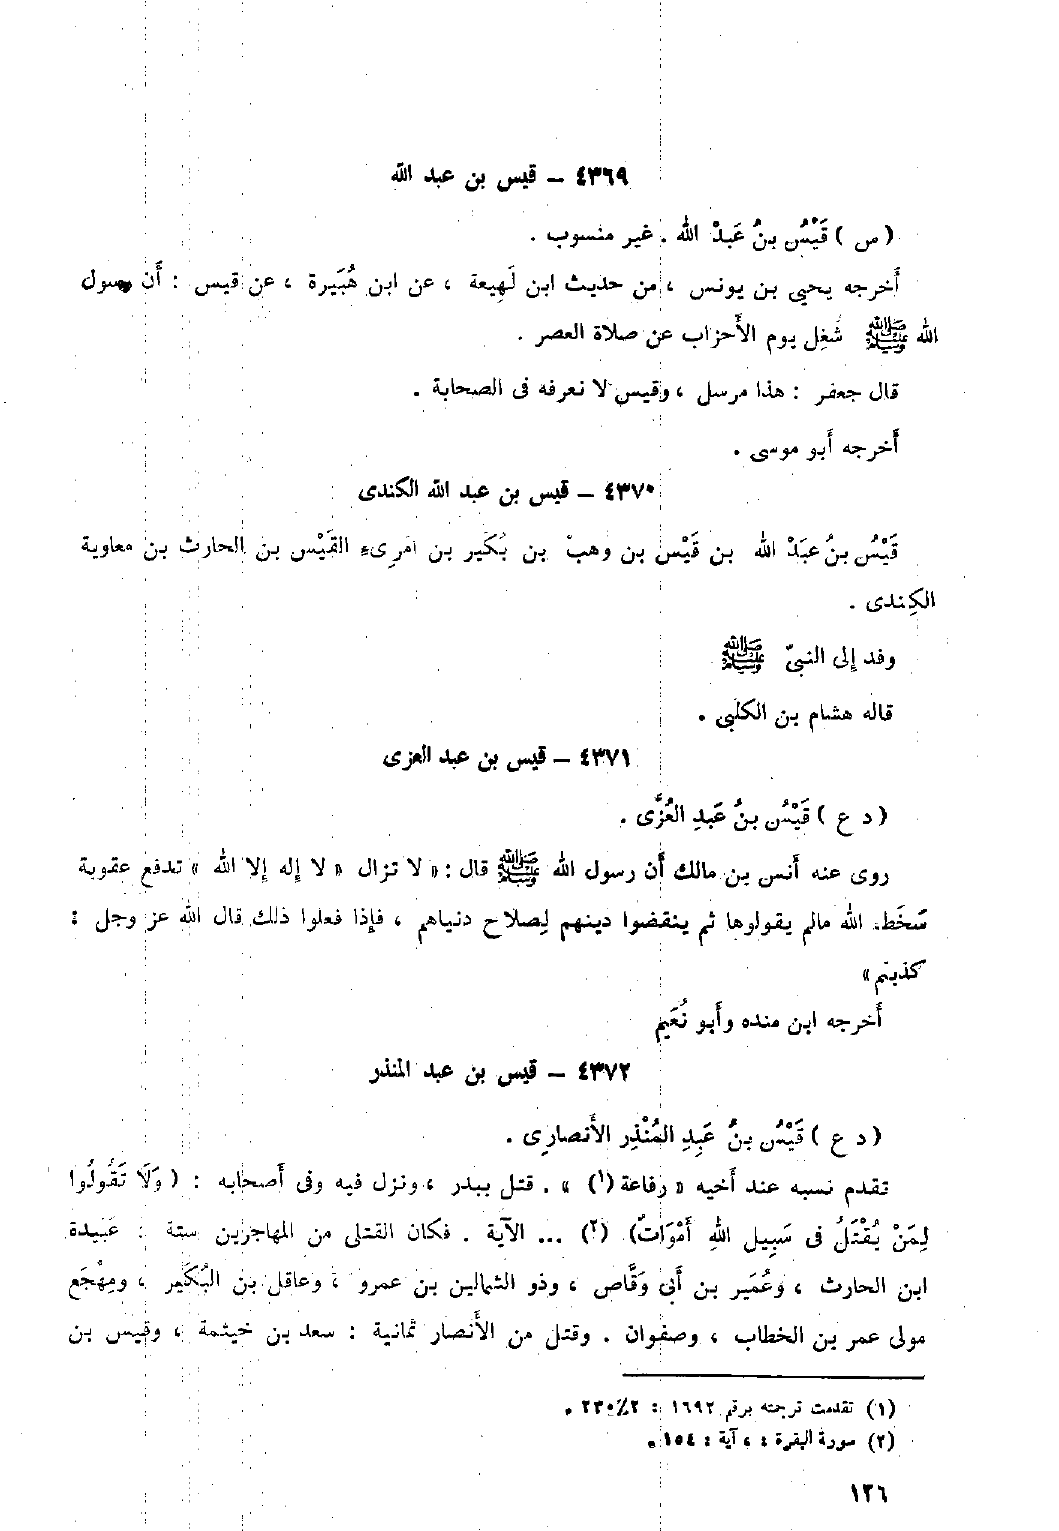 ٤٣٦٩ – قيس بن عبد الله
( س ) قَيْسُ بنُ عَبدْ الله . غير منسوب .
أَخرجه يحيى بن يونس ، من حديث ابن لَهِيعة ، عن ابن هُبَيرة ، عن قيس : أَن رسول
الله ﷺ شُغِل يوم الأَحزاب عن صلاة العصر .
قال جعفر : هذا مرسل ، وقيس لا نعرفه فى الصحابة .
أَخرجه أَبو موسى .
٤٣٧٠ – قيس بن عبد الله الكندى
قَيْسُ بنُ عبَدْ الله بن قَيْس بن وهبْ بن بُكَير بن امرىءِ القَيْس بن الحارث بن معاوية
الكِندى .
وفد إِلى النبىّ ﷺ
قاله هشام بن الكلبى .
٤٣٧١ – قيس بن عبد العزى
( د ع ) قَيْسُ بنُ عَبدِ العُزَّى .
روى عنه أَنس بن مالك أَن رسول الله ﷺ قال : « لا تزال « لا إِله إلا الله » تدفع عقوبة
سَخَط الله مالم يقولوها ثم ينقضوا دينهم لِصلاح دنياهم ، فإِذا فعلوا ذلك قال الله عز وجل :
كذبتم »
أَخرجه ابن منده وأَبو نُعَيم
٤٣٧٢ – قيس بن عبد المنذر
( د ع ) قَيْسُ بنُ عَبدِ المُنْذِر الأَنصارى .
تقدم نسبه عند أَخيه « رفاعة (١) » . قتل ببدر ، ونزل فيه وفى أَصحابه : ( وَلَا تَقُولُوا
لِمَنْ يُقْتَلُ فى سَبِيل اللهِ أَمْوَاتٌ) (٢) ... الآية . فكان القتلى من المهاجرين ستة : عَبيدة
ابن الحارث ، وعُمَير بن أَبى وَقَّاص ، وذو الشمالين بن عمرو ، وعاقل بن البُكَير ، ومِهْجَع
مولى عمر بن الخطاب ، وصفوان . وقتل من الأَنصار ثمانية : سعد بن خيثمة ، وقيس بن
(١) تقدمت ترجمته برقم ١٦٩٢ : ٢٣٠/٢ .
(٢) سورة البقرة ، آية : ١٥٤ .
١٢٦